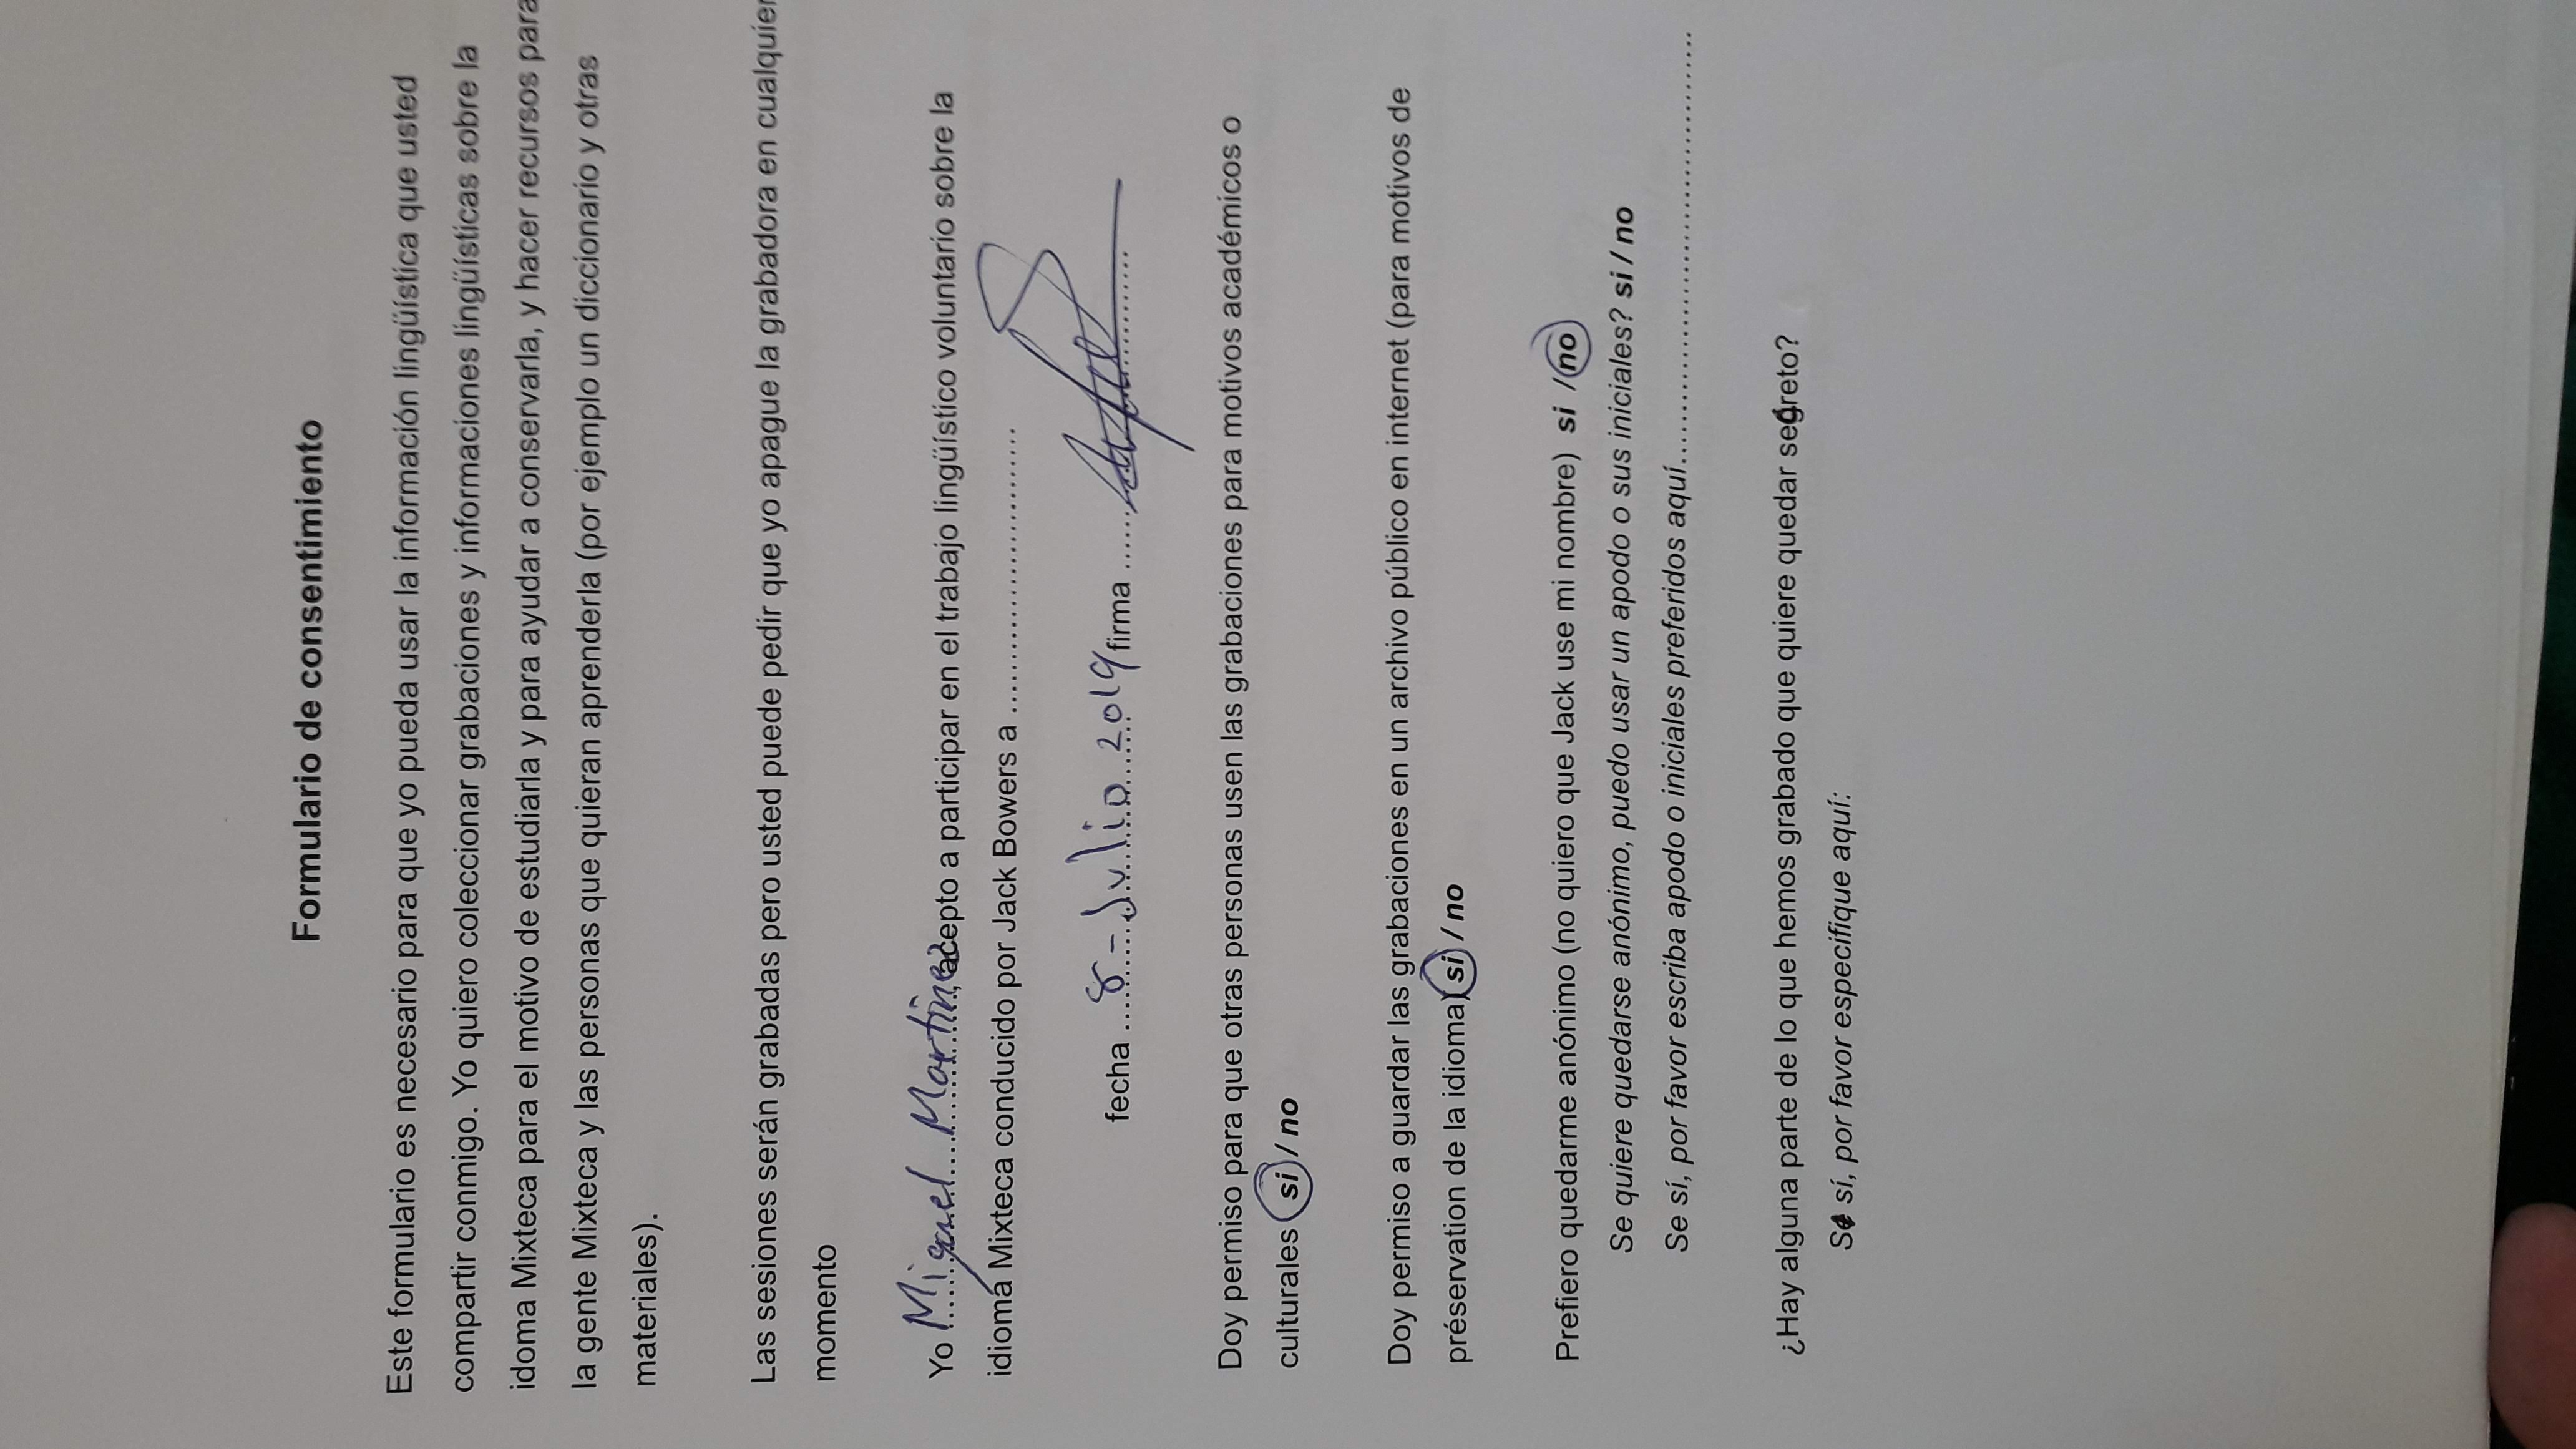 Formulario de consentimiento
Este formulario es necesario para que yo pueda usar la información lingüística que usted
compartir conmigo. Yo quiero coleccionar grabaciones y informaciones lingüísticas sobre la
idoma Mixteca para el motivo de estudiarla y para ayudar a conservarla, y hacer recursos para
la gente Mixteca y las personas que quieran aprenderla (por ejemplo un diccionario y otras
materiales).
Las sesiones serán grabadas pero usted puede pedir que yo apague la grabadora en cualquier
momento
Yo Miguel Martinez acepto a participar en el trabajo lingüístico voluntario sobre la
idioma Mixteca conducido por Jack Bowers a ..............................
fecha .... 8 - Julio 2019 firma ......
Doy permiso para que otras personas usen las grabaciones para motivos académicos o
culturales si / no
Doy permiso a guardar las grabaciones en un archivo público en internet (para motivos de
préservation de la idioma) si / no
Prefiero quedarme anónimo (no quiero que Jack use mi nombre) si / no
Se quiere quedarse anónimo, puedo usar un apodo o sus iniciales? si / no
Se sí, por favor escriba apodo o iniciales preferidos aquí.............................................
¿Hay alguna parte de lo que hemos grabado que quiere quedar segreto?
Si sí, por favor especifique aquí: